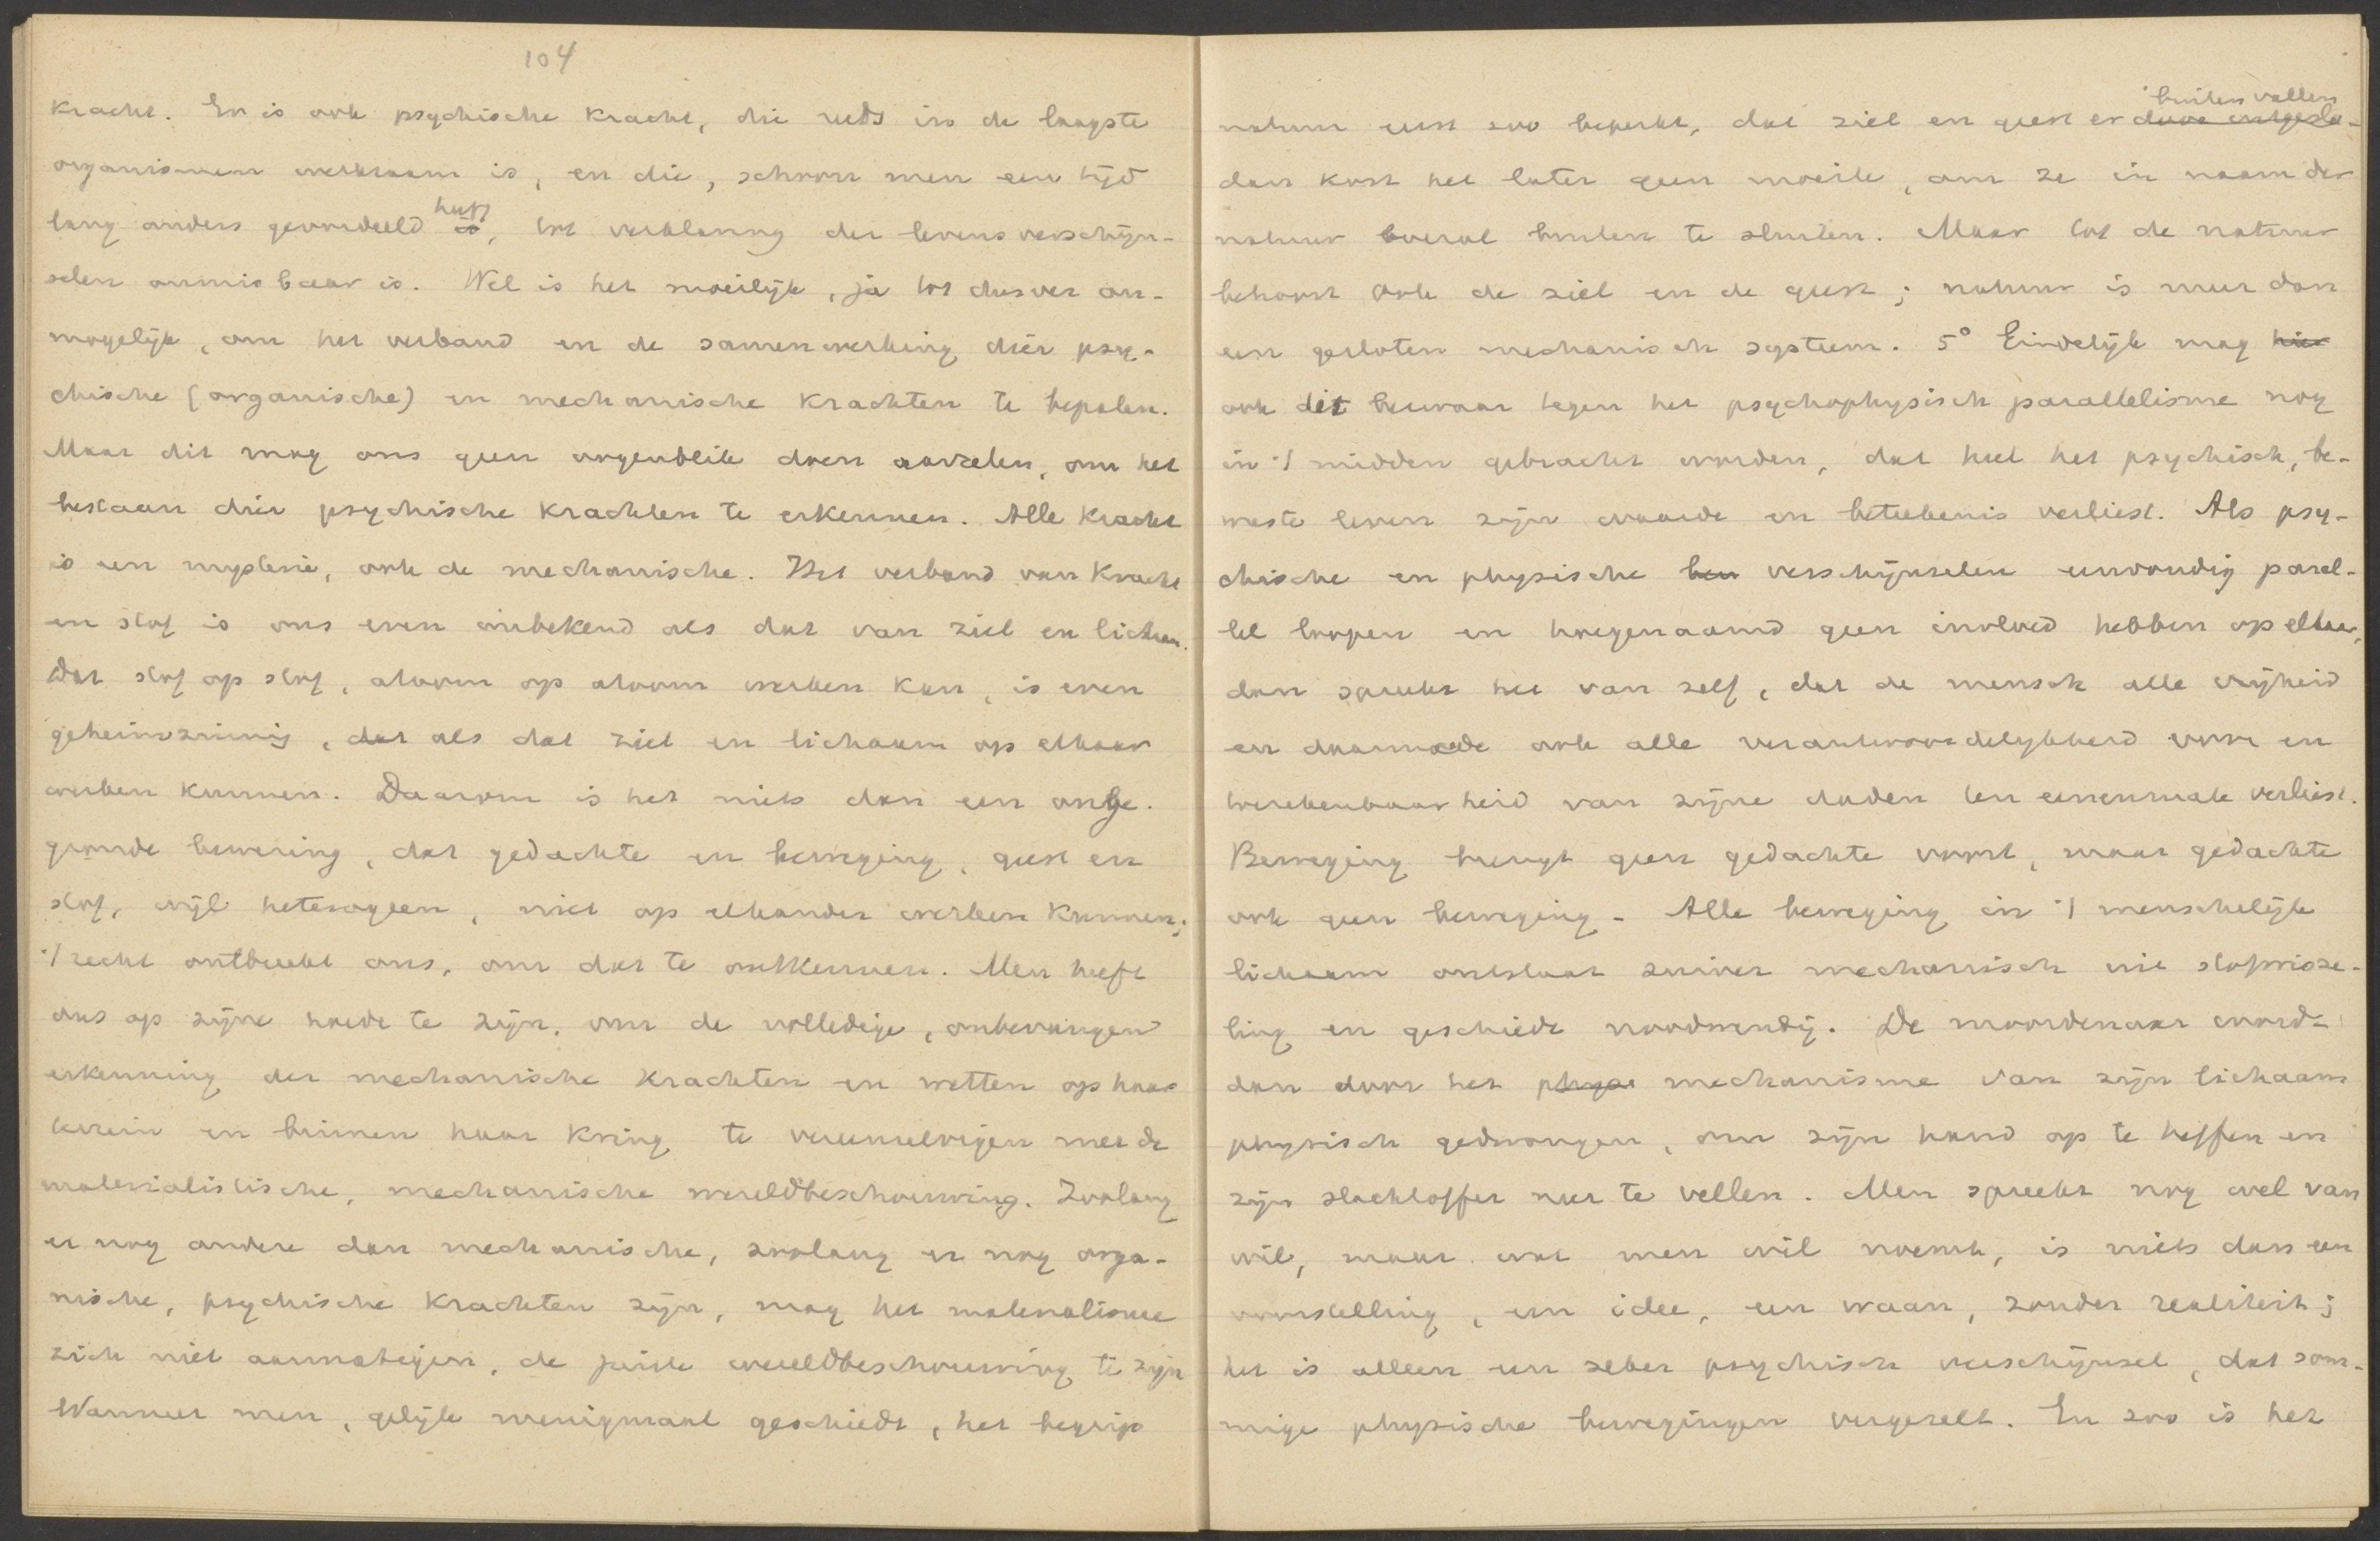 104
kracht. Er is ook psychische kracht, die reeds in de laagste
organismen werkzaam is, en die, schoon men een tijd
lang anders geoordeeld heeft is, tot verklaring der levensverschijn-
selen onmisbaar is. Wel is het moeilijk, ja tot dusver on-
mogelijk, om het verband en de samenwerking dier psy-
chische (organische) en mechanische krachten te bepalen.
Maar dit mag ons geen oogenblik doen aarzelen, om het
bestaan dier psychische krachten te erkennen. Alle kracht
is een mysterie, ook de mechanische. Het verband van kracht
en stof is ons even onbekend als dat van ziel en lichaam.
Dat stof op stof, atoom op atoom werken kan, is even
geheimzinnig, dat als dat ziel en lichaam op elkaar
werken kunnen. Daarom is het niets dan een onge-
gronde bewering, dat gedachte en beweging, geest en
stof, wijl heterogeen, niet op elkander werken kunnen;
't recht ontbreekt ons, om dat te ontkennen. Men heeft
dus op zijne hoede te zijn, om de volledige, onbevangen
erkenning der mechanische krachten en wetten op haar
terrein en binnen haar kring te vereenzelvigen met de
materialistische, mechanische wereldbeschouwing. Zoolang
er nog andere dan mechanische, zoolang er nog orga-
nische, psychische krachten zijn, mag het materialisme
zich niet aanmatigen, de juiste wereldbeschouwing te zijn
Wanneer men, gelijk menigmaal geschiedt, het begrip
buiten vallen
natuur eerst zoo beperkt, dat ziel en geest er door
dan kost het later geen moeite, om ze in naam der
natuur overal buiten te sluiten. Maar tot de natuur
behoort ook de ziel en de geest; natuur is meer dan
een gesloten mechanisch systeem. 5° Eindelijk mag hier
ook dit bezwaar tegen het psychophysisch parallelisme nog
in 't midden gebracht worden, dat heel het psychisch, be-
wuste leven zijn waarde en beteekenis verliest. Als psy-
chische en physische ben verschijnselen eenvoudig paral-
lel loopen en hoegenaamd geen invloed hebben op elkaar,
dan spreekt het van zelf, dat de mensch alle vrijheid
en daarmede ook alle verantwoordelijkheid voor en
toerekenbaarheid van zijne daden ten eenenmale verliest.
Beweging brengt geen gedachte voort, maar gedachte
ook geen beweging. Alle beweging in 't menschelijk
lichaam ontstaat zuiver mechanisch uit stofwisse-
ling en geschiedt noodwendig. De moordenaar wordt
dan door het physi mechanisme van zijn lichaam
physisch gedwongen, om zijn hand op te heffen en
zijn slachtoffer neer te vellen. Men spreekt nog wel van
wil, maar wat men wil noemt, is niets dan een
voorstelling, een idee, een waan, zonder realiteit;
het is alleen een zeker psychisch verschijnsel, dat som-
mige physische bewegingen vergezelt. En zoo is het